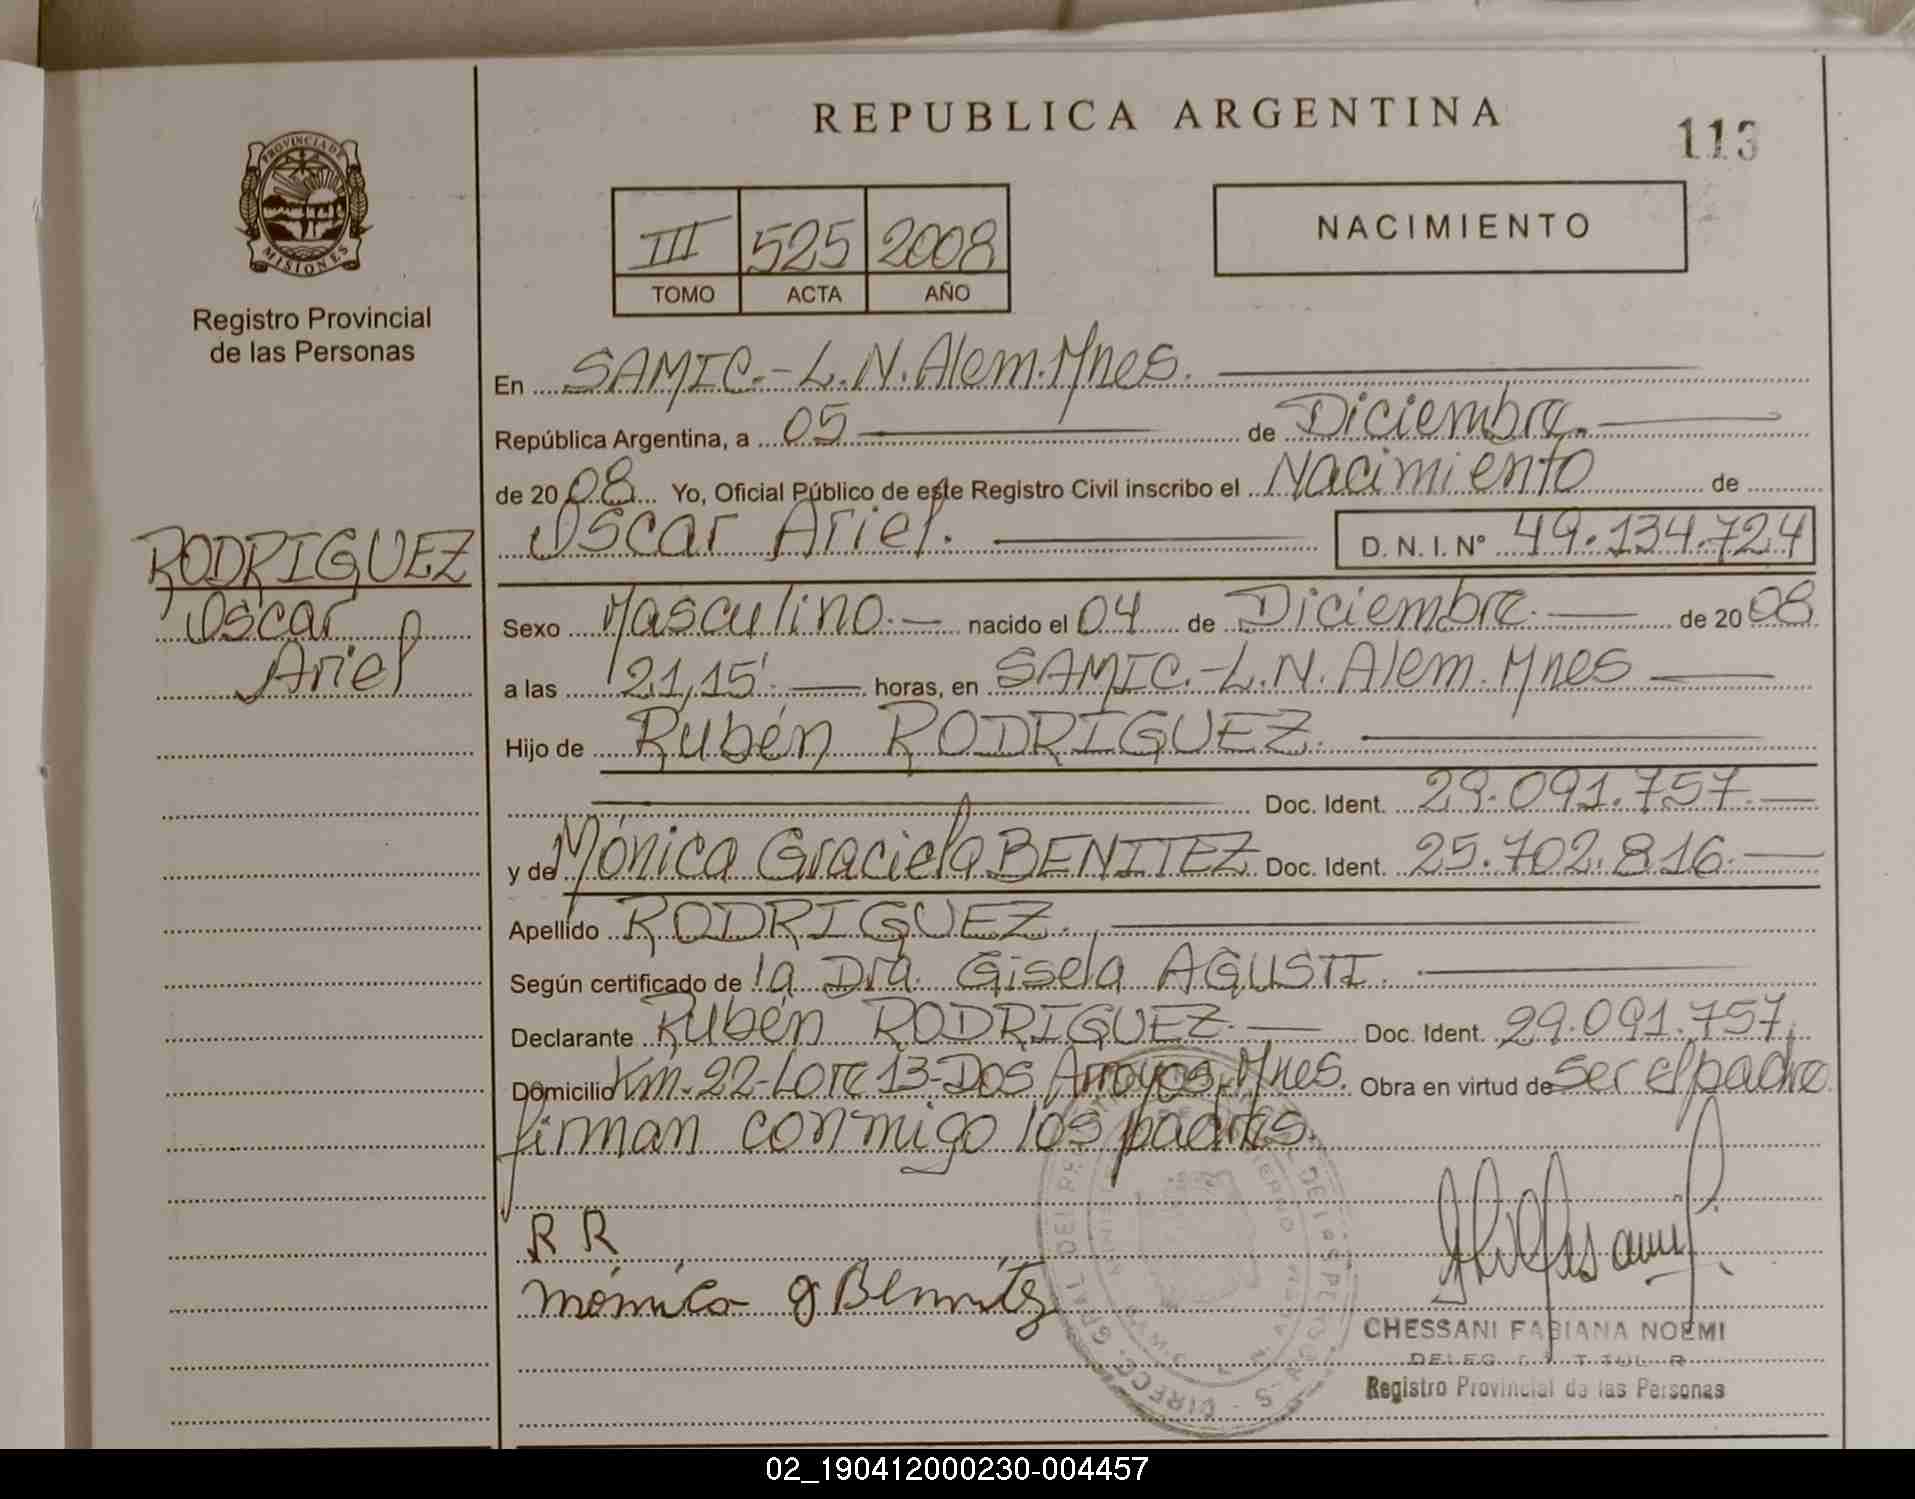 REPUBLICA ARGENTINA
113
PROVINCIA DE
MISIONES
Registro Provincial
de las Personas
III 525 2008
TOMO ACTA AÑO
NACIMIENTO
En SAMIC.-L.N.Alem.Mnes.
República Argentina, a 05 de Diciembre.
de 2008 Yo, Oficial Público de este Registro Civil inscribo el Nacimiento de
Oscar Ariel. D. N. I. Nº 49.134.724
RODRIGUEZ
Oscar
Ariel
Sexo Masculino. nacido el 04 de Diciembre. de 2008
a las 21,15' horas, en SAMIC.-L.N. Alem. Mnes
Hijo de Rubén RODRIGUEZ.
Doc. Ident. 29.091.757.
y de Mónica Graciela BENITEZ Doc. Ident. 25.702.816.
Apellido RODRIGUEZ.
Según certificado de la Dra. Gisela AGUSTI.
Declarante Rubén RODRIGUEZ. Doc. Ident. 29.091.757,
Domicilio Km. 22-Lote 13-Dos Arroyos, Mnes. Obra en virtud de ser el padre
firman conmigo los padres.
R R
Mónica g Benitez
CHESSANI FABIANA NOEMI
Registro Provincial de las Personas
02_190412000230-004457